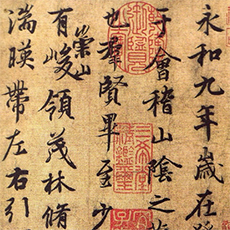 永和九年歲在
于會稽山陰之
也羣賢畢至少
有崇山峻領茂林脩
湍暎帶左右引